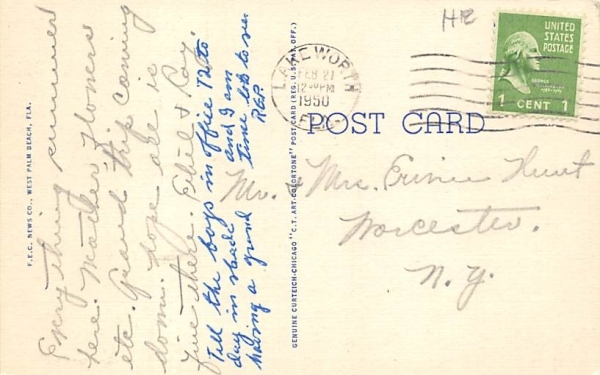 Everything summer
here. Weather Flowers
etc. Grand trip coming
down. Hope all is
fine there. Ethel & Ray.
Tell the boys in office 72 to
day in shade and I am
having a grand time lots to see
R.G.P.
F.E.C. NEWS CO., WEST PALM BEACH, FLA.
GENUINE CURTEICH-CHICAGO "C.T. ART-COLORTONE" POST CARD (REG. U.S. PAT. OFF.)
HR
LAKE WORTH
FEB 27
12 PM
1950
FLA.
UNITED
STATES
POSTAGE
1 CENT 1
POST CARD
Mr. & Mrs. Ernie Hunt
Worcester.
N.Y.